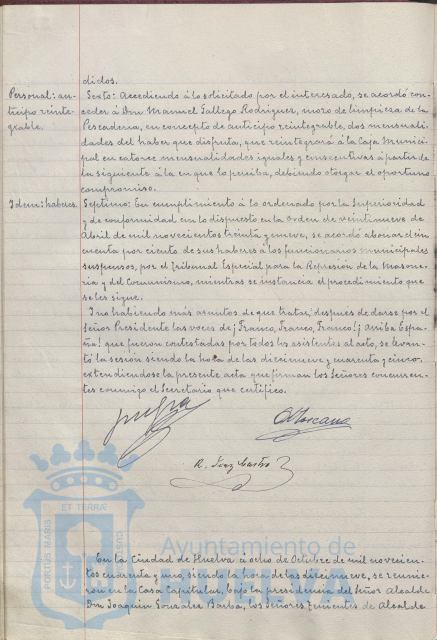 didos.
Personal: an-
ticipo reinte-
grable.
Sexto: Accediendo á lo solicitado por el interesado, se acordó con-
ceder á Don Manuel Gallego Rodriguez, mozo de limpieza de la
Pescaderia, en concepto de anticipo reintegrable, dos mensuali-
dades del haber que disfruta, que reintegrará á la Caja Munici-
pal en catorce mensualidades iguales y consecutivas á partir de
la siguiente á la en que lo perciba, debiendo otorgar el oportuno
compromiso.
Idem: haberes.
Septimo: En cumplimiento á lo ordenado por la Superioridad
y de conformidad con lo dispuesto en la Orden de veintinueve de
Abril de mil novecientos treinta y nueve, se acordó abonar el cin-
cuenta por ciento de sus haberes á los funcionarios municipales
suspensos, por el Tribunal Especial para la Represión de la Masone-
ria y del Comunismo, mientras se instancia el procedimiento que
se les sigue.
Y no habiendo más asuntos de que tratar, despues de darse por el
Señor Presidente las voces de ¡Franco, Franco, Franco! ¡Arriba Espa-
ña! que fueron contestadas por todos los asistentes al acto, se levan-
tó la sesión siendo la hora de las diecinueve y cuarenta y cinco,
extendiendose la presente acta que firman los Señores concurren-
tes conmigo el Secretario que certifico.
R. Diaz Castro
PORTUS MARIS ET TERRÆ CUSTODIA
Ayuntamiento de
HUELVA
En la Ciudad de Huelva á ocho de Octubre de mil novecien-
tos cuarenta y uno, siendo la hora de las diecinueve, se reunie-
ron en la Casa Capitular, bajo la presidencia del Señor Alcalde
Don Joaquin Gonzalez Barba, los Señores Tenientes de Alcalde